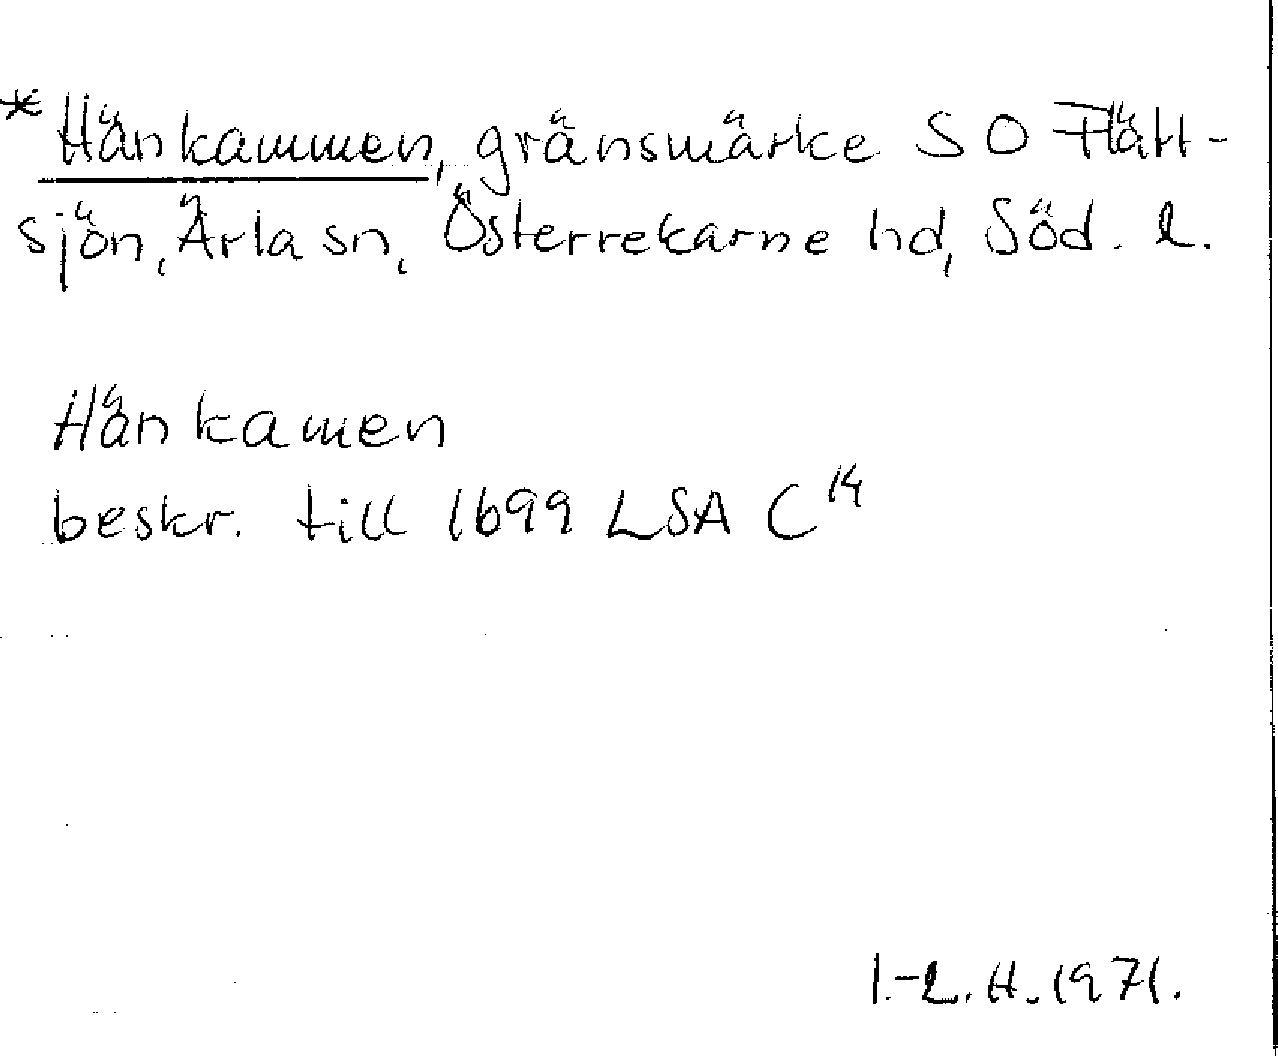 *Hänkammen, gränsmärke SO Flätt-
sjön, Ärla sn, Österrekarne hd, Söd. l.
Hänkamen
beskr. till 1699 LSA C 14
I.-L. H. 1971.